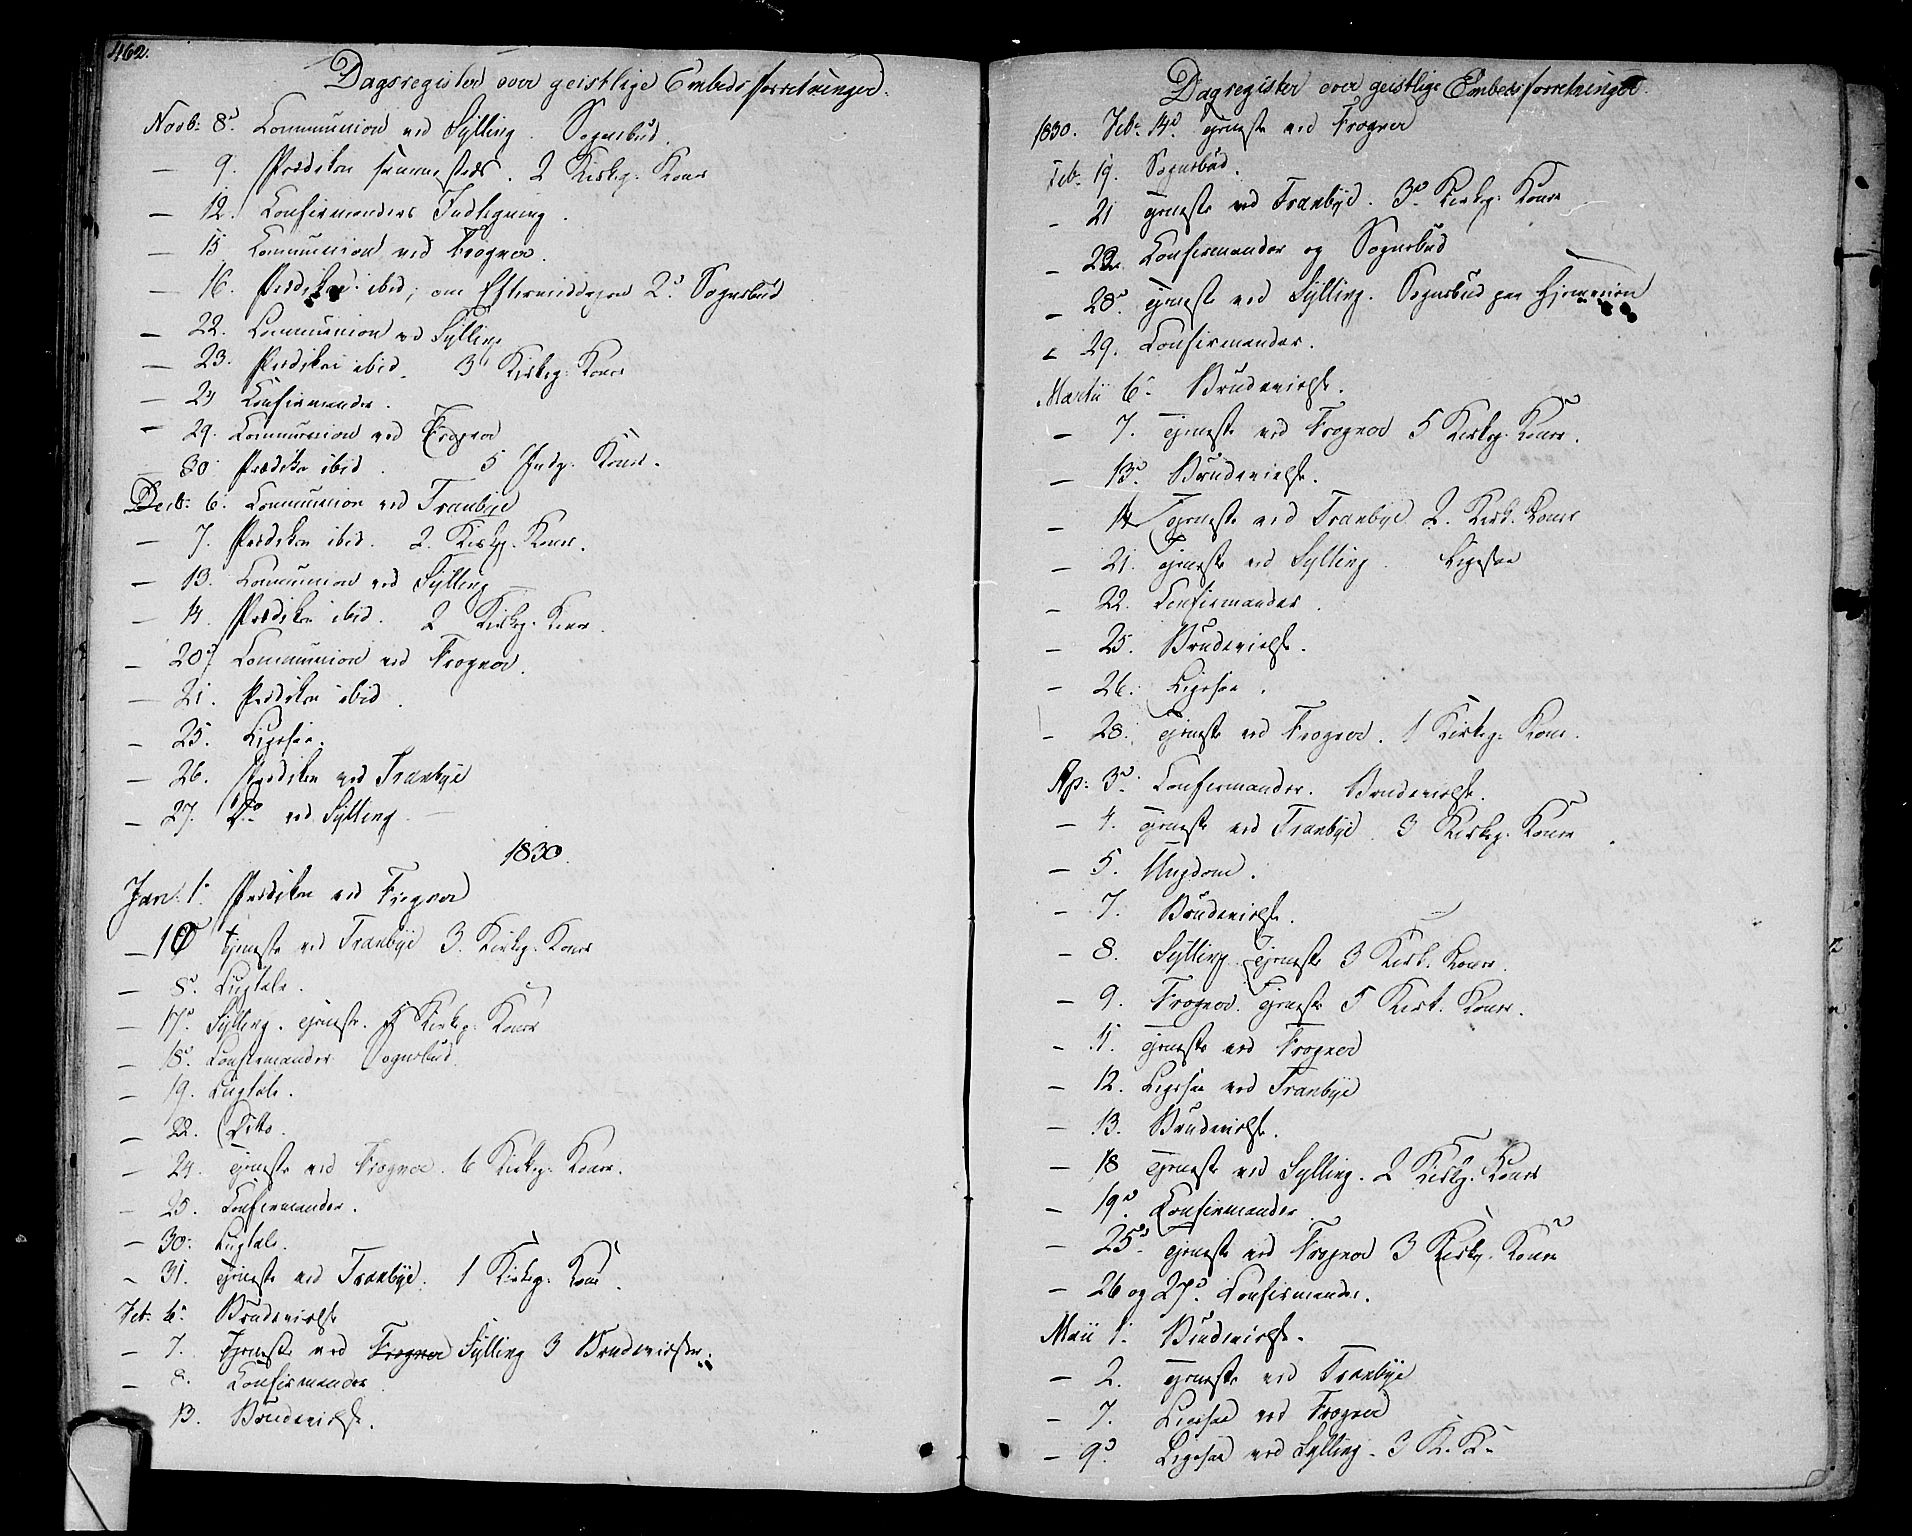 462.
Dagsregister over geistlige Embedsforretninger.
Novb: 8d Communion ved Sylling. Sognebud.
— 9. Prædiken sammesteds. 2 Kirkeg: Koner
— 12. Confirmanders Indtegning.
— 15 Communion ved Frogner.
— 16. Prædiken ibid; om Eftermiddagen 2d Sognebud
— 22. Communion ved Sylling
— 23. Prædiken ibid. 3 Kirkeg: Koner
— 24 Confirmander.
— 29. Communion ved Frogner
— 30 Prædiken ibid. 5 Indg. Koner.
Decb: 6. Communion ved Tranbye
— 7. Prædiken ibid. 2. Kirkeg. Koner.
— 13. Communion ved Sylling
— 14. Prædiken ibid. 2 Kirkeg. Koner.
— 20d. Communion ved Frogner.
— 21. Prædiken ibid.
— 25. Ligesaa.
— 26. Prædiken ved Tranbye
— 27. Do ved Sylling
1830.
Jan: 1. Prædiken ved Frogner
— 10 Tjeneste ved Tranbye 3. Kirkeg. Koner
— 8d. Liigtale.
— 17d Sylling. Tjeneste. 5 Kirkeg: Koner
— 18d Confirmander Sognebud.
— 19. Liigtale.
— 22. Ditto.
— 24. Tjeneste ved Frogner. 6 Kirkeg: Koner.
— 25. Confirmander.
— 30: Liigtale.
— 31. Tjeneste ved Tranbye. 1 Kirkeg: Kone.
Feb. 6d Brudevielse
— 7. Tjeneste ved Frogner Sylling 3 Brudevielser.
— 8. Confirmander
13. Brudevielse.
Dagregister over geistlige Embedsforretninger.
1830. Feb: 14d. Tjeneste ved Frogner
Feb. 19. Sognebud.
— 21 Tjeneste ved Tranbye. 3d Kirkeg: Koner
— 22. Confirmander og Sognebud
— 28d Tjeneste ved Sylling. Sognebud paa Hjemveien
— 29. Confirmander.
Martii 6d Brudevielse.
— 7. Tjeneste ved Frogner 5 Kirkeg. Koner.
— 13d Brudevielse.
— 14 Tjeneste ved Tranbye 2. Kirk. Koner
— 21. Tjeneste ved Sylling. Ligesaa
— 22. Confirmander.
— 25. Brudevielse.
— 26. Ligesaa.
— 28. Tjeneste ved Frogner. 1 Kirkeg: Kone.
Ap: 3d. Confirmander. Brudevielse.
— 4. Tjeneste ved Tranbye. 3 Kirkeg. Koner
— 5. Ungdom.
— 7. Brudevielse.
— 8. Sylling Tjeneste 3 Kirk. Koner.
— 9. Frogner. Tjeneste 5 Kirk. Koner.
— 11. Tjeneste ved Frogner
— 12. Ligesaa ved Tranbye
— 13. Brudevielse.
— 18 Tjeneste ved Sylling. 2 Kirkeg. Koner
— 19d. Confirmander
— 25d Tjeneste ved Frogner 3 Kirkeg. Koner
— 26 og 27d. Confirmander.
Maii 1. Brudevielse.
— 2. Tjeneste ved Tranbye
— 7. Ligesaa ved Frogner
— 9d. Ligesaa ved Sylling. 3 K. K.